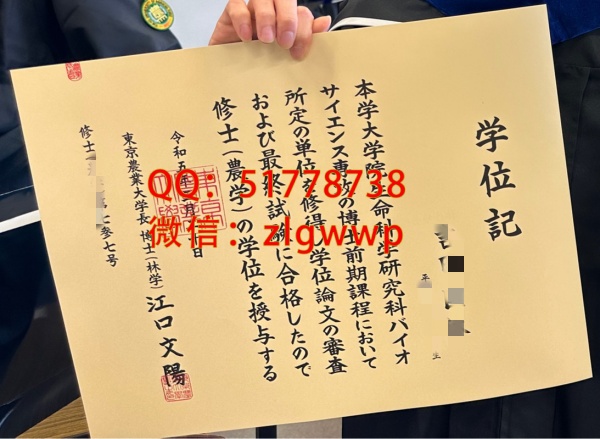 学位記
平
生
本学大学院生命科学研究科バイオ
サイエンス専攻の博士前期課程において
所定の単位を修得し学位論文の審査
および最終試験に合格したので
修士(農学)の学位を授与する
令和五年
日
東京農業大学長 博士(林学) 江口文陽
修士
七参七号
QQ: 51778738
微信: zlgwwp